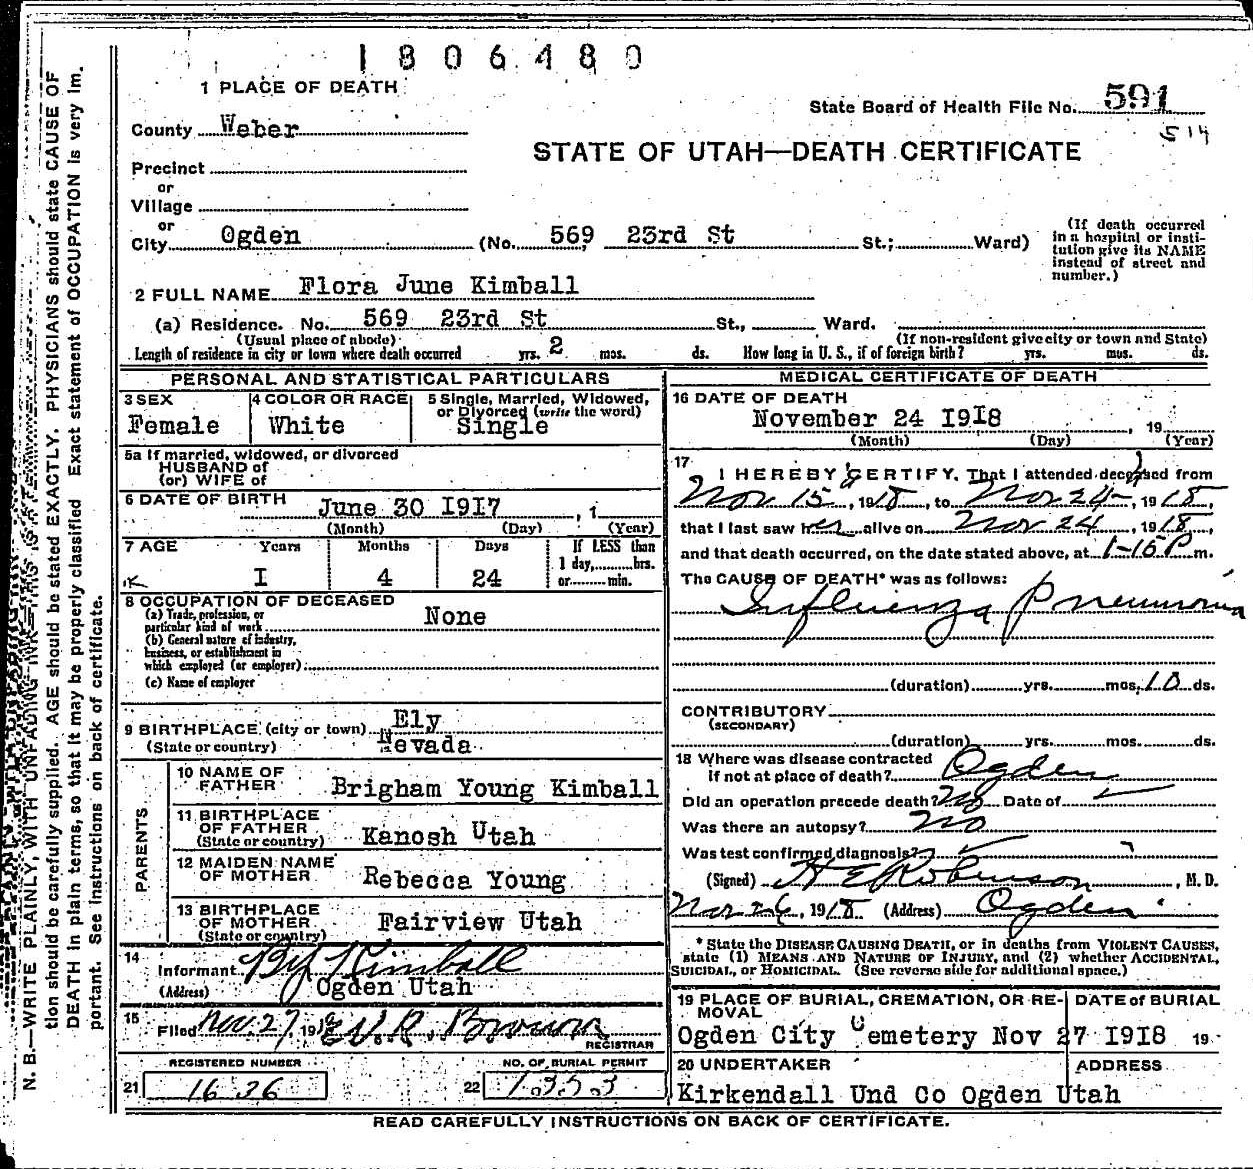 1806480
1 PLACE OF DEATH
State Board of Health File No. 591
514
County Weber
STATE OF UTAH—DEATH CERTIFICATE
Precinct
or
Village
or
City Ogden (No. 569 23rd St St.; Ward)
(If death occurred
in a hospital or insti-
tution give its NAME
instead of street and
number.)
2 FULL NAME Flora June Kimball
(a) Residence. No. 569 23rd St St., Ward.
(Usual place of abode) (If non-resident give city or town and State)
Length of residence in city or town where death occurred yrs. 2 mos. ds. How long in U. S., if of foreign birth? yrs. mos. ds.
PERSONAL AND STATISTICAL PARTICULARS
3 SEX
Female
4 COLOR OR RACE
White
5 Single, Married, Widowed,
or Divorced (write the word)
Single
5a If married, widowed, or divorced
HUSBAND of
(or) WIFE of
6 DATE OF BIRTH June 30 I9I7 , 1
(Month) (Day) (Year)
7 AGE Years Months Days If LESS than
1 day, hrs.
I 4 24 or min.
8 OCCUPATION OF DECEASED
(a) Trade, profession, or
particular kind of work None
(b) General nature of industry,
business, or establishment in
which employed (or employer)
(c) Name of employer
9 BIRTHPLACE (city or town) Ely
(State or country) Nevada
PARENTS
10 NAME OF
FATHER Brigham Young Kimball
11 BIRTHPLACE
OF FATHER
(State or country) Kanosh Utah
12 MAIDEN NAME
OF MOTHER Rebecca Young
13 BIRTHPLACE
OF MOTHER
(State or country) Fairview Utah
14
Informant B Y Kimball
(Address) Ogden Utah
15
Filed Nov. 27, 191 Brown
REGISTRAR
REGISTERED NUMBER NO. OF BURIAL PERMIT
21 1636 22 1353
MEDICAL CERTIFICATE OF DEATH
16 DATE OF DEATH
November 24 I9I8 , 19
(Month) (Day) (Year)
17
I HEREBY CERTIFY, That I attended deceased from
Nov 15, 1918, to Nov 24, 1918,
that I last saw her alive on Nov 24, 1918,
and that death occurred, on the date stated above, at 1-15 P m.
The CAUSE OF DEATH* was as follows:
Influenza Pneumonia
(duration) yrs. mos. 10 ds.
CONTRIBUTORY
(SECONDARY)
(duration) yrs. mos. ds.
18 Where was disease contracted
if not at place of death? Ogden
Did an operation precede death? No Date of
Was there an autopsy? No
Was test confirmed diagnosis?
(Signed) H E Robinson, M. D.
Nov 26, 1918 (Address) Ogden
* State the DISEASE CAUSING DEATH, or in deaths from VIOLENT CAUSES,
state (1) MEANS AND NATURE OF INJURY, and (2) whether ACCIDENTAL,
SUICIDAL, or HOMICIDAL. (See reverse side for additional space.)
19 PLACE OF BURIAL, CREMATION, OR RE-
MOVAL
DATE of BURIAL
Ogden City Cemetery Nov 27 I9I8 19
20 UNDERTAKER ADDRESS
Kirkendall Und Co Ogden Utah
READ CAREFULLY INSTRUCTIONS ON BACK OF CERTIFICATE.
N. B.—WRITE PLAINLY, WITH UNFADING INK—THIS IS A PERMANENT
tion should be carefully supplied. AGE should be stated EXACTLY. PHYSICIANS should state CAUSE OF
DEATH in plain terms, so that it may be properly classified Exact statement of OCCUPATION is very im.
portant. See instructions on back of certificate.